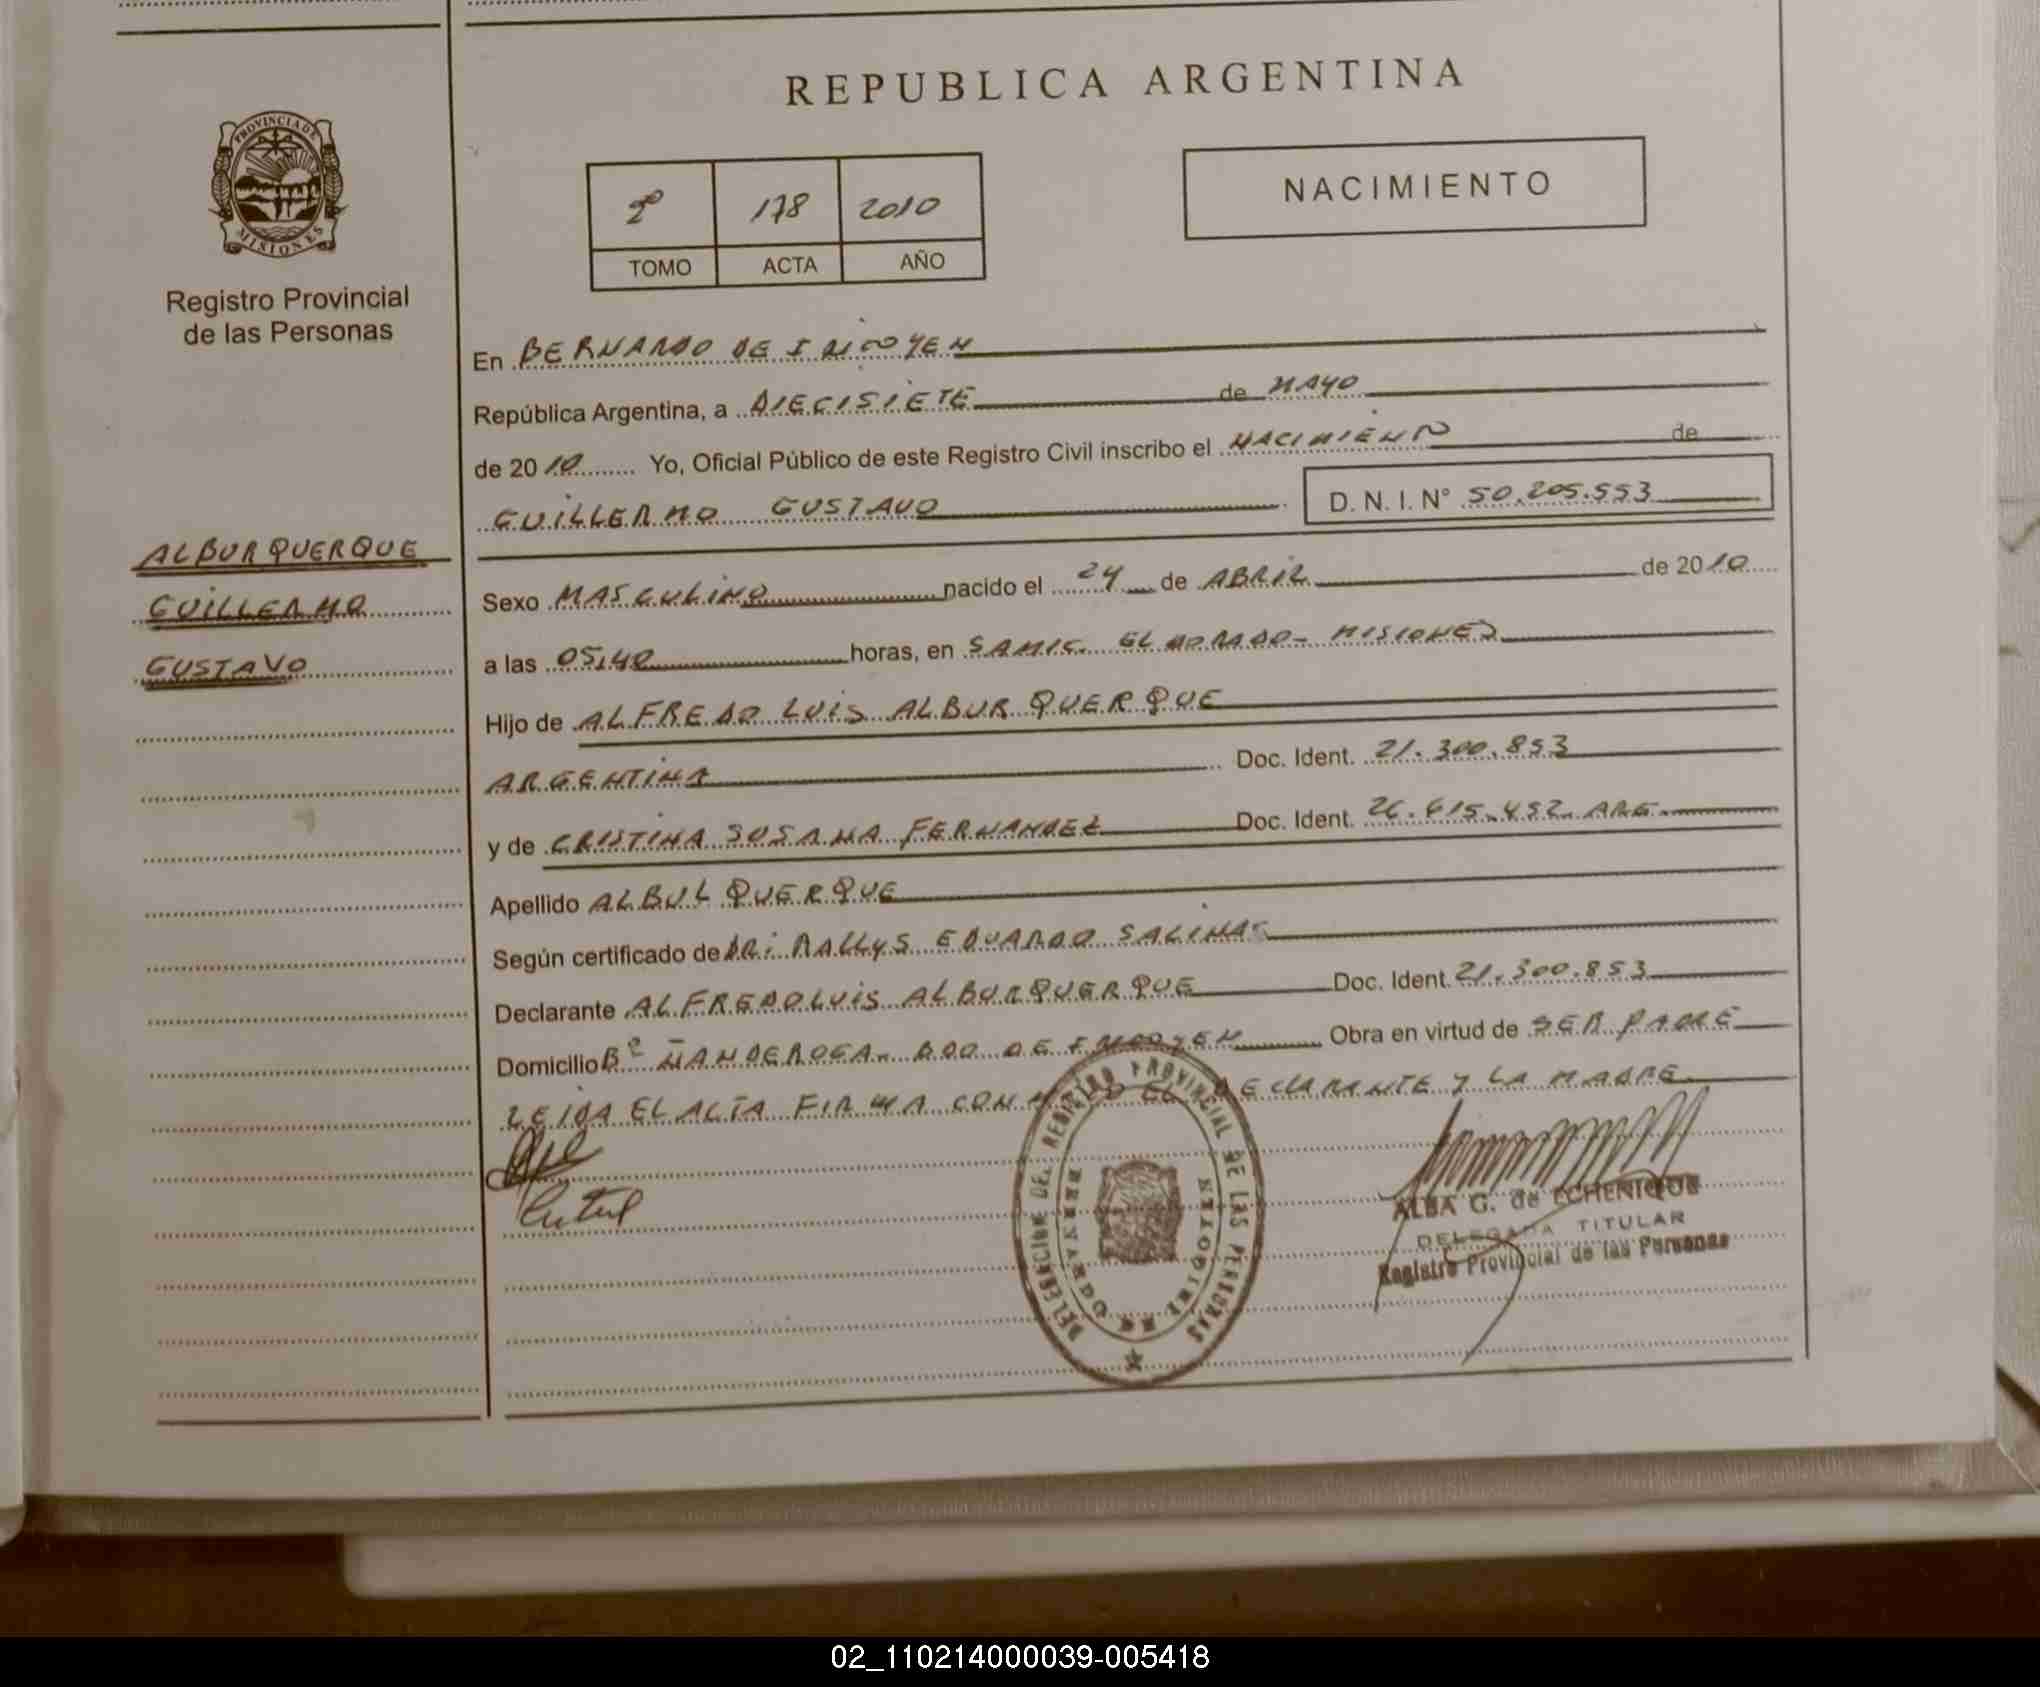 REPUBLICA ARGENTINA
PROVINCIA DE
MISIONES
Registro Provincial
de las Personas
2º 178 2010
TOMO ACTA AÑO
NACIMIENTO
En BERNARDO DE IRIGOYEN
República Argentina, a DIECISIETE de MAYO
de 2010 Yo, Oficial Público de este Registro Civil inscribo el NACIMIENTO de
GUILLERMO GUSTAVO D. N. I. N° 50.205.553
ALBURQUERQUE
GUILLERMO
GUSTAVO
Sexo MASCULINO nacido el 24 de ABRIL de 2010
a las 05,40 horas, en SAMIC. ELDORADO - MISIONES
Hijo de ALFREDO LUIS ALBURQUERQUE
ARGENTINA Doc. Ident. 21.300.853
y de CRISTINA SUSANA FERNANDEZ Doc. Ident. 26.615.452 ARG.
Apellido ALBULQUERQUE
Según certificado de DR: RALLYS EDUARDO SALINAS
Declarante ALFREDO LUIS ALBURQUERQUE Doc. Ident. 21.300.853
Domicilio Bº ÑANDEROGA. BDO DE IRIGOYEN Obra en virtud de SER PADRE
LEIDA EL ACTA FIRMA CONMIGO EL DECLARANTE Y LA MADRE.
DELEGACION DEL REGISTRO PROVINCIAL DE LAS PERSONAS
BERNARDO DE IRIGOYEN
ALBA G. de ECHENIQUE
DELEGADA TITULAR
Registro Provincial de las Personas
02_110214000039-005418